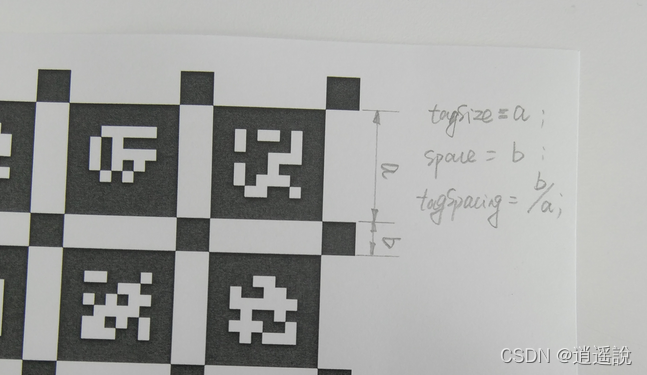 tagsize = a ;
space = b :
tagspacing = b/a;
a
b
CSDN @逍遥說